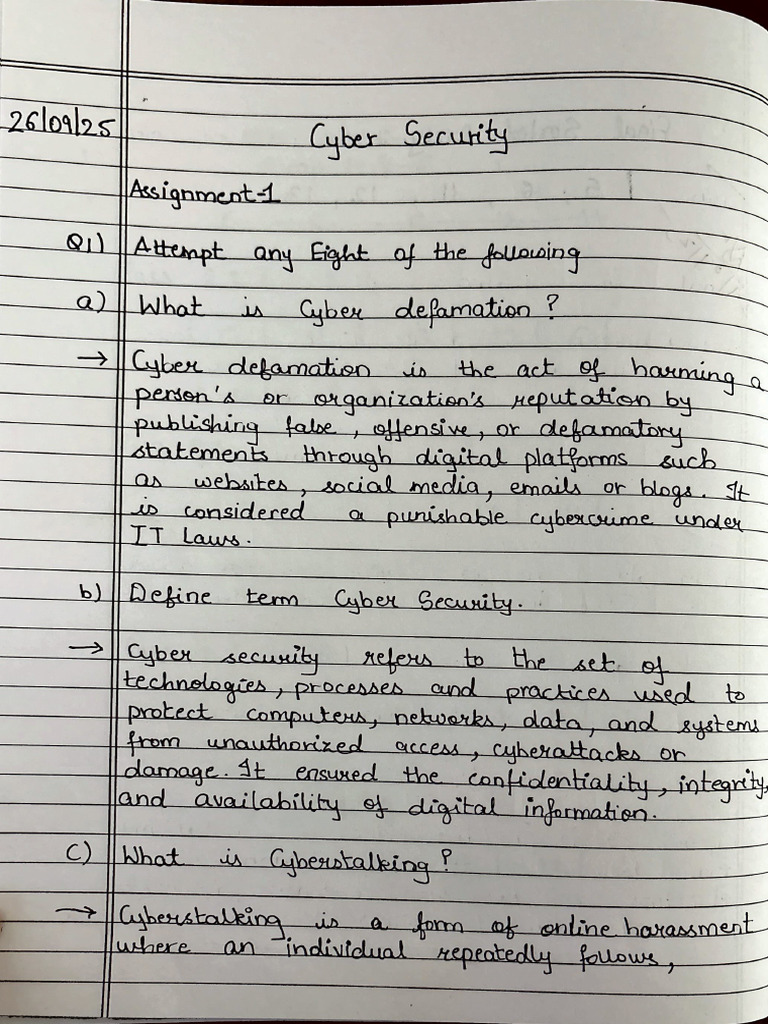 26/09/25
Cyber Security
Assignment-1
Q1) Attempt any Eight of the following
a) What is Cyber defamation?
→ Cyber defamation is the act of harming a
person's or organization's reputation by
publishing false, offensive, or defamatory
statements through digital platforms such
as websites, social media, emails or blogs. It
is considered a punishable cybercrime under
IT Laws.
b) Define term Cyber Security.
→ Cyber security refers to the set of
technologies, processes and practices used to
protect computers, networks, data, and systems
from unauthorized access, cyberattacks or
damage. It ensured the confidentiality, integrity,
and availability of digital information.
C) What is Cyberstalking?
→ Cyberstalking is a form of online harassment
where an individual repeatedly follows,